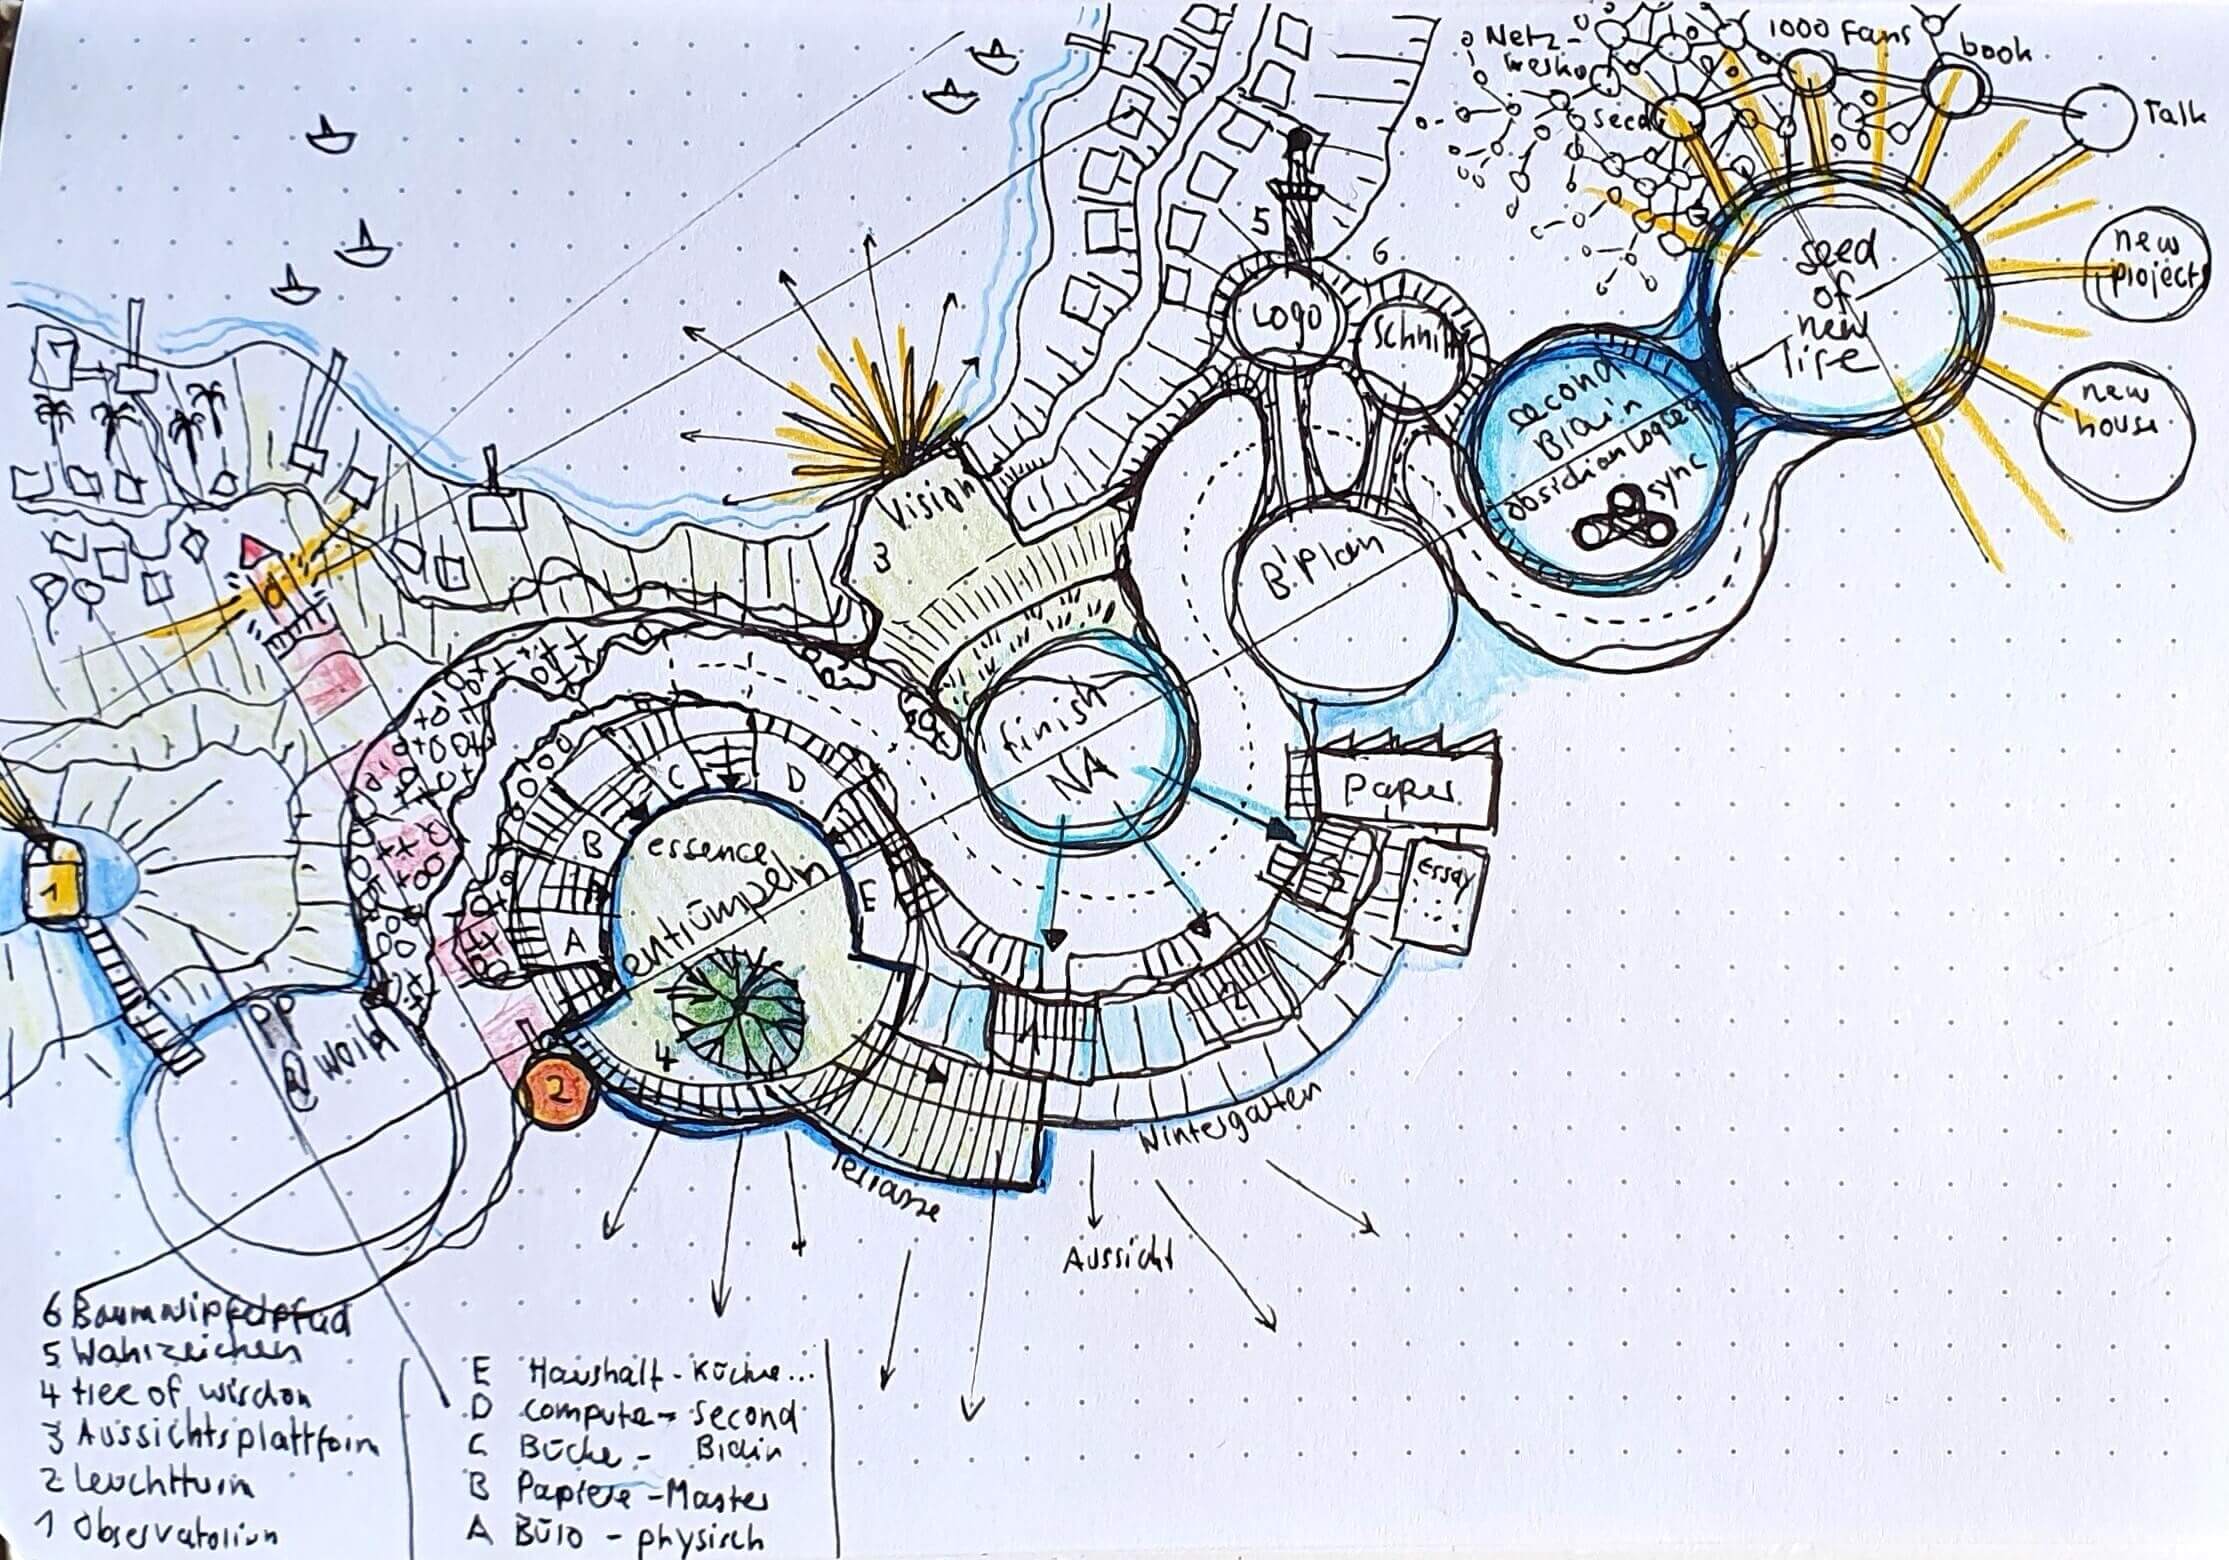 Netz-
werke
1000 Fans
book
Talk
Seed
new
projects
new
house
seed
of
new
life
5
6
Logo
Schnitt
second
Brain
obsidian Logseq
sync
Vision
3
B'Plan
finish
NA
Paper
essay
3
2
1
C
D
B
E
A
essence
entrümpeln
4
2
1
PP
@work
Terrasse
Wintergarten
Aussicht
6 Baumwipfelpfad
5 Wahrzeichen
4 tree of wisdom
3 Aussichtsplattform
2 Leuchtturm
1 Observatorium
E Haushalt - Küche...
D computer - second
C Bücher - Brain
B Papiere - Master
A Büro - physisch